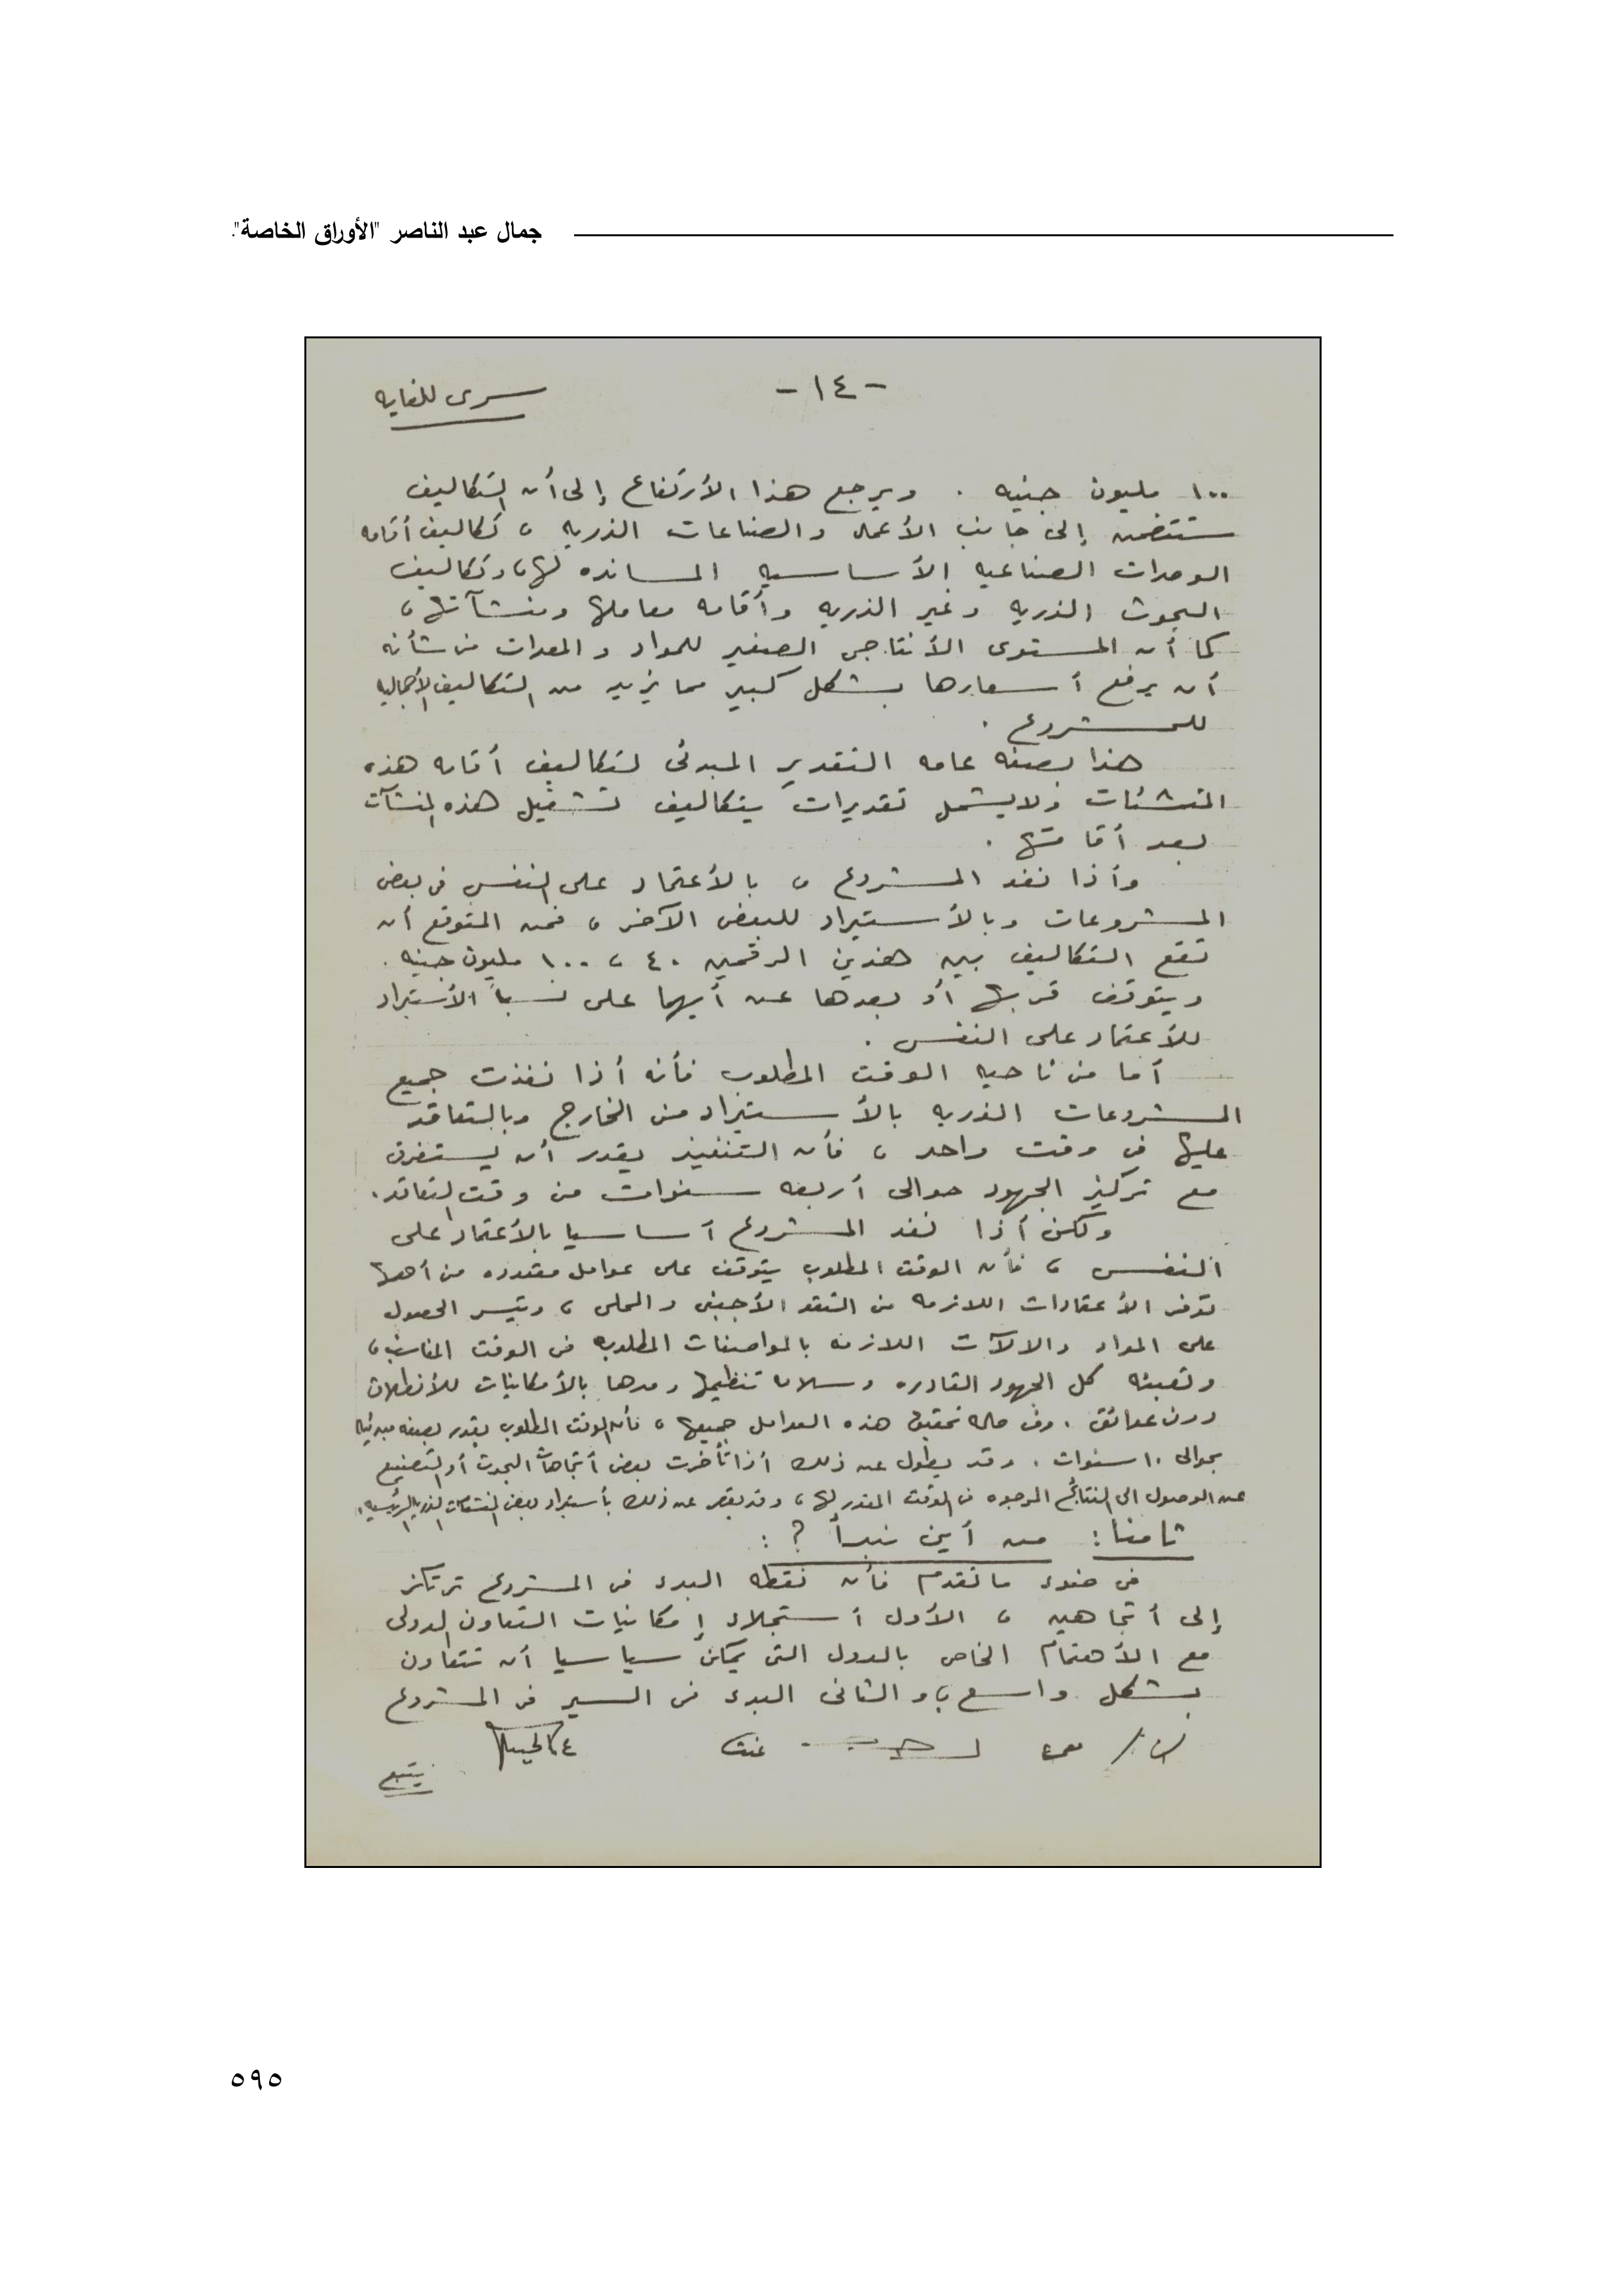 جمال عبد الناصر "الأوراق الخاصة".
- ١٤ -
سرى للغايه
١٠٠ مليون جنيه . ويرجع هذا الأرتفاع إلى أن التكاليف
ستتضمن إلى جانب الأعمال والصناعات الذريه ، تكاليف أقامه
الوحدات الصناعيه الأساسيه المسانده لها ، وتكاليف
البحوث الذريه وغير الذريه وأقامه معاملها ومنشآتها ،
كما أن المستوى الأنتاجى الصغير للمواد والمعدات من شأنه
أن يرفع أسعارها بشكل كبير مما يزيد من التكاليف الأجماليه
للمشروع .
هذا بصفه عامه التقدير المبدئى لتكاليف أقامه هذه
المنشئات ولا يشمل تقديرات تكاليف تشغيل هذه المنشآت
بعد أقامتها .
وأذا نفذ المشروع ، بالأعتماد على النفس فى بعض
المشروعات وبالأستيراد للبعض الآخر ، فمن المتوقع أن
تقع التكاليف بين هذين الرقمين ٤٠ ، ١٠٠ مليون جنيه .
ويتوقف قربها أو بعدها عن أيهما على نسبة الأستيراد
للأعتماد على النفس .
أما من ناحيه الوقت المطلوب فأنه أذا نفذت جميع
المشروعات الذريه بالأستيراد من الخارج وبالتعاقد
عليها فى وقت واحد ، فأن التنفيذ يقدر أن يستغرق
مع تركيز الجهود حوالى أربعه سنوات من وقت التعاقد .
ولكن أذا نفذ المشروع أساسيا بالأعتماد على
النفس ، فأن الوقت المطلوب يتوقف على عوامل متعدده من أهمها
توفر الأعتمادات اللازمه من النقد الأجنبى والمحلى ، وتيسر الحصول
على المواد والالآت اللازمه بالمواصفات المطلوبه فى الوقت المناسب ،
وتعبئه كل الجهود القادره وسلامة تنظيمها ومدها بالأمكانيات للأنطلاق
دون عوائق . وفى حاله تحقيق هذه العوامل جميعها ، فأن الوقت المطلوب يقدر بصفه مبدئيه
بحوالى ١٠ سنوات . وقد يطول عن ذلك أذا تأخرت بعض أتجاهات البحوث أو التصنيع
عن الوصول الى النتائج المرجوه فى الوقت المقدر لها ، وقد يقصر عن ذلك بأستيراد بعض المنشئات الذريه الرئيسيه .
ثامنا : من أين نبدأ ؟ :
فى ضوء ما تقدم فأن نقطه البدء فى المشروع ترتكز
إلى أتجاهين ، الأول أستجلاء إمكانيات التعاون الدولى
مع الأهتمام الخاص بالدول التى يمكن سياسيا أن تتعاون
بشكل واسع ، والثانى البدء فى السير فى المشروع
يتبع
٥٩٥